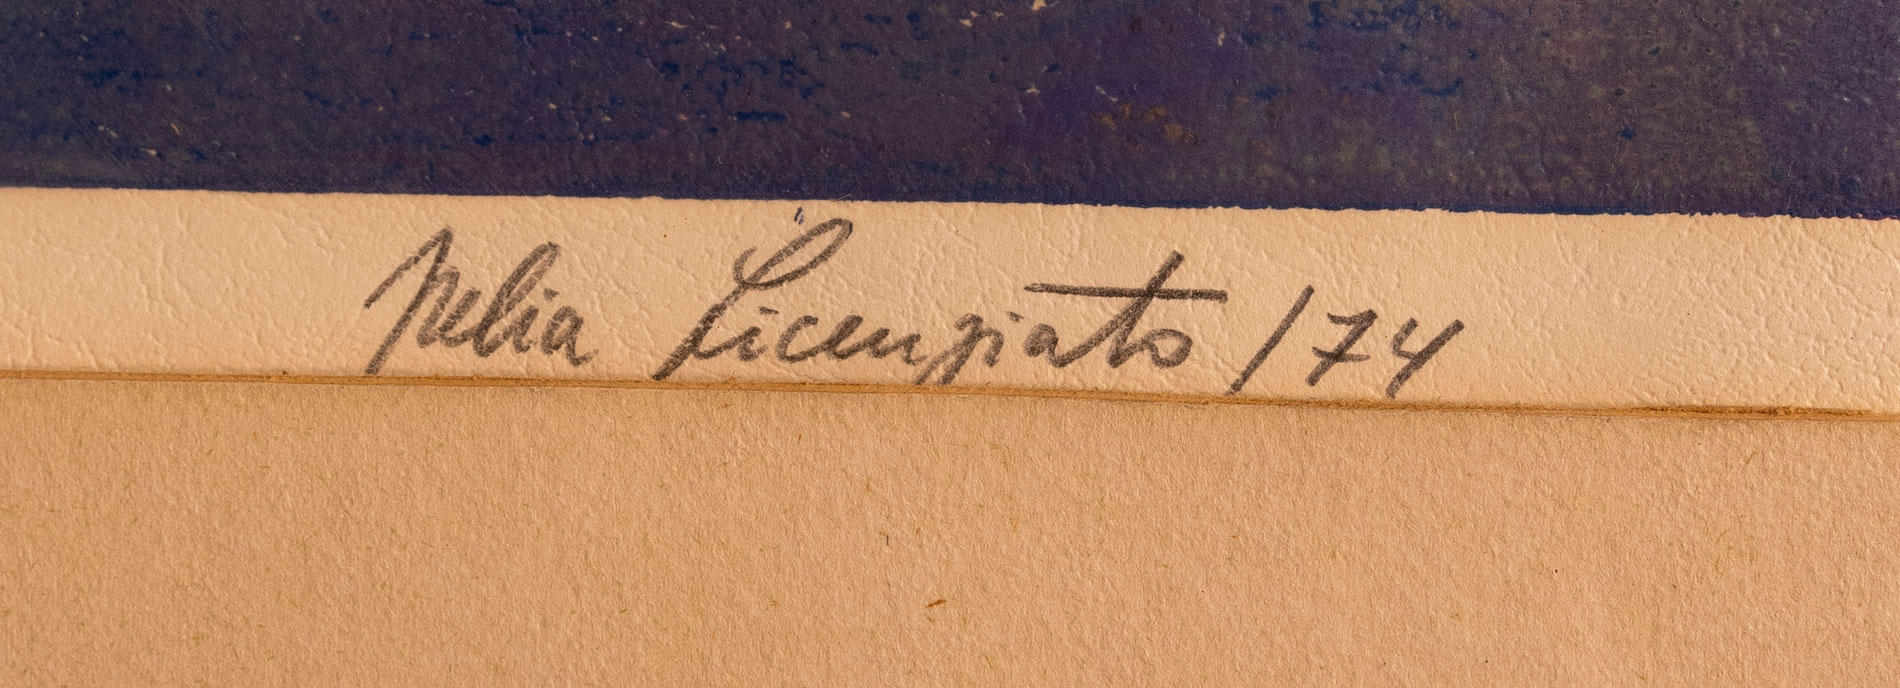 Nelia Licenziato /74